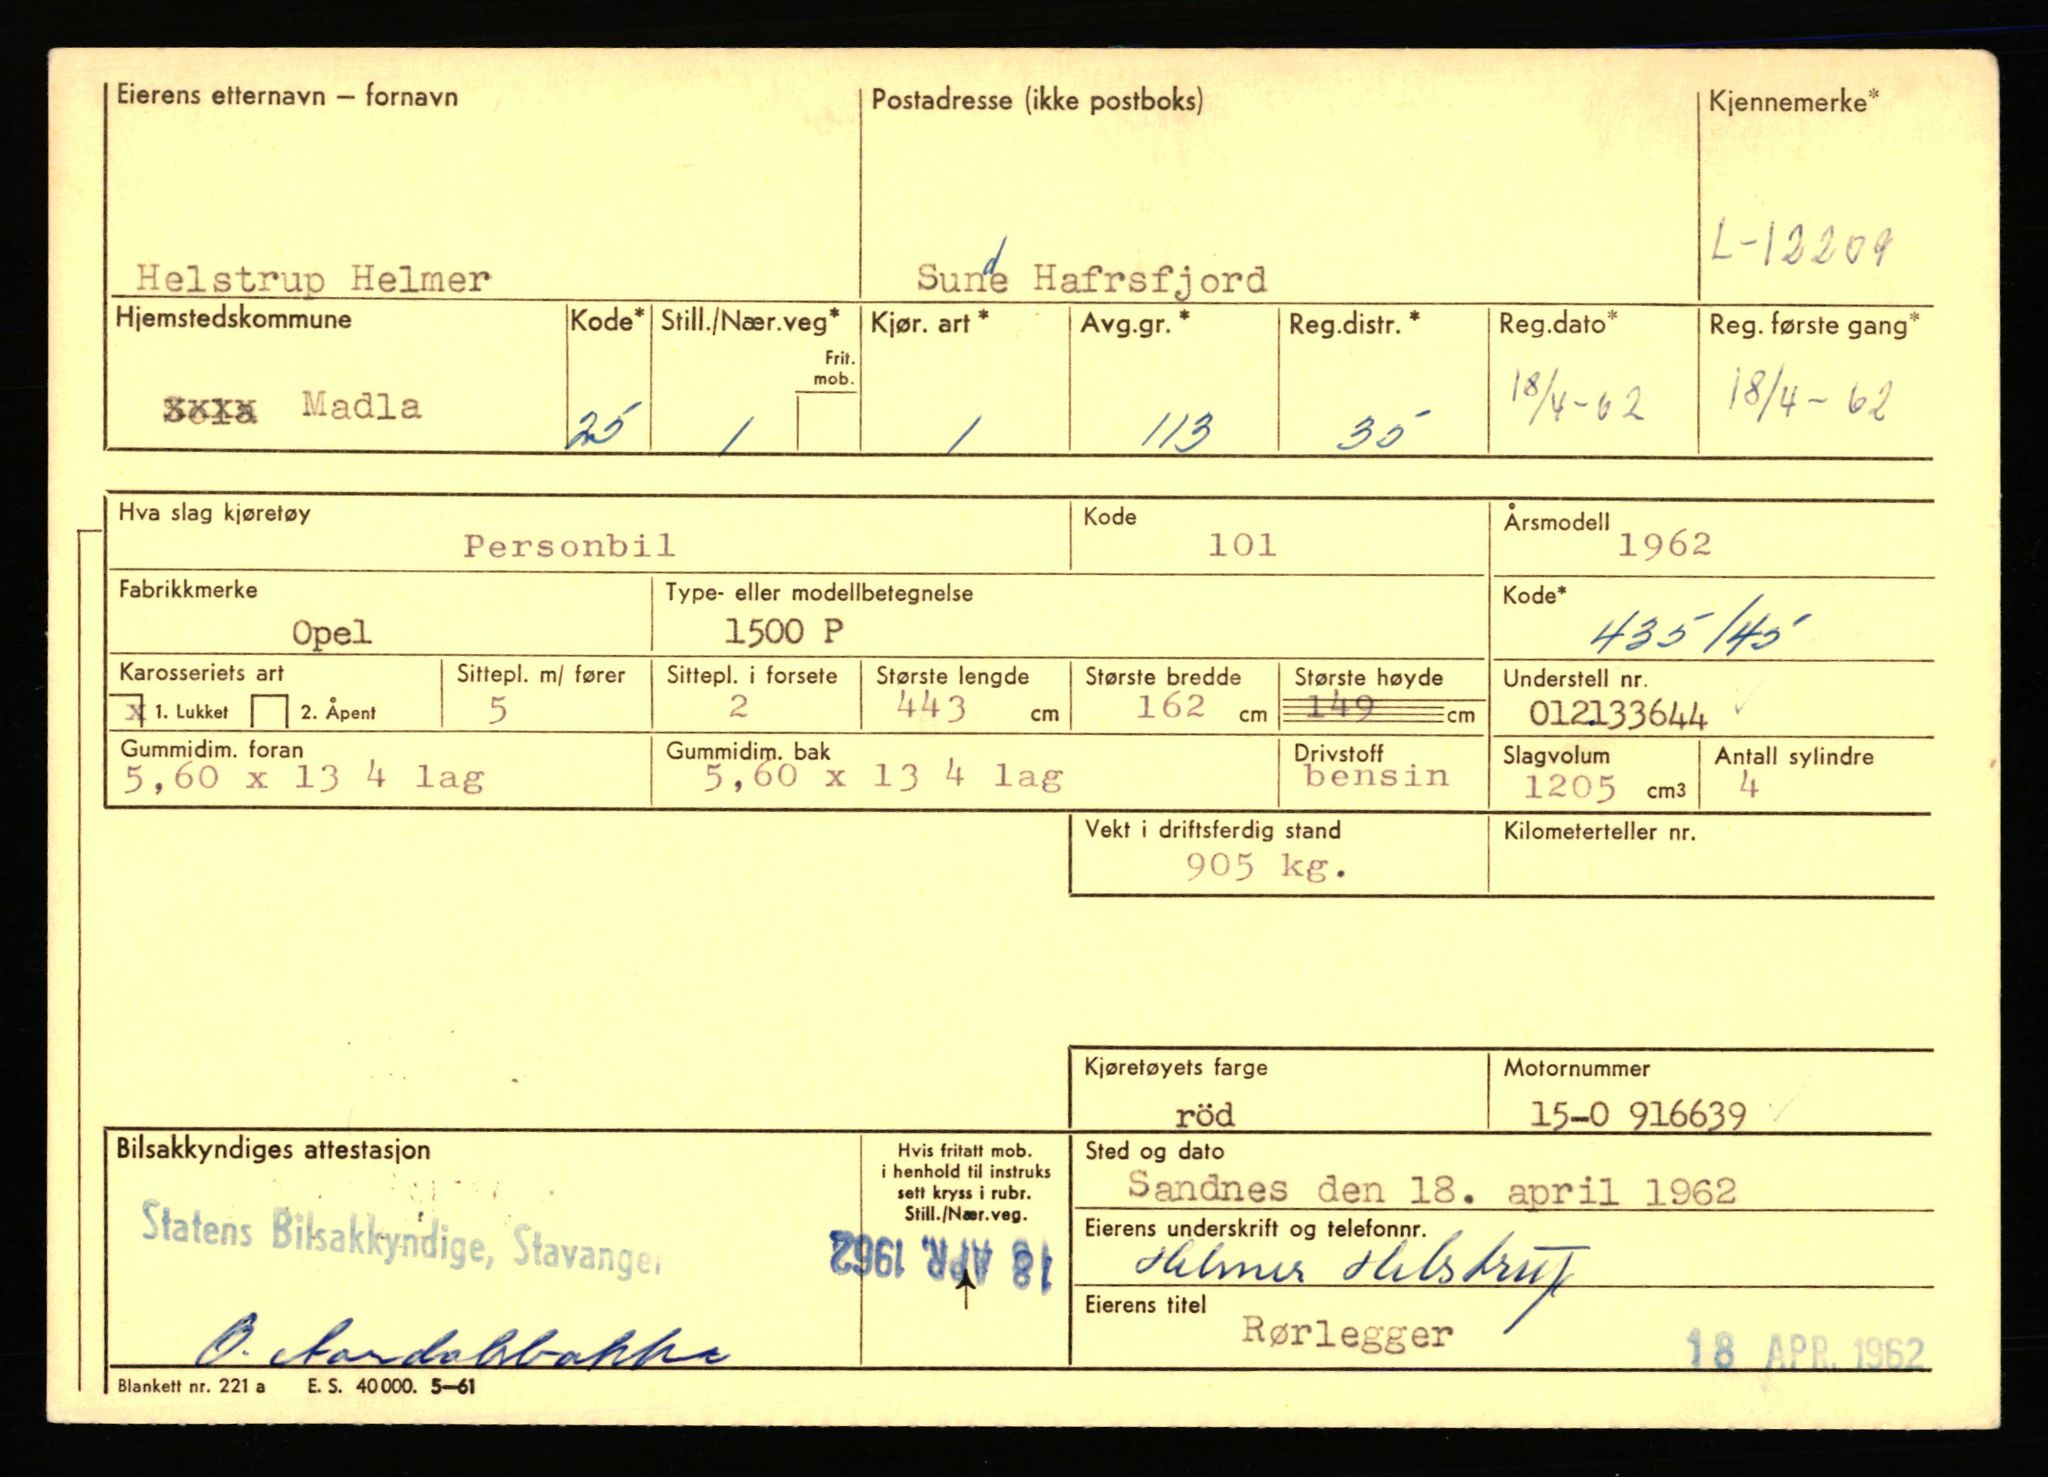 Eierens etternavn – fornavn
Postadresse (ikke postboks)
Kjennemerke*
Helstrup Helmer
Sunde Hafrsfjord
d
L-12209
Hjemstedskommune
Kode*
Still./Nær.veg*
Frit. mob.
Kjør. art*
Avg.gr.*
Reg.distr.*
Reg.dato*
Reg. første gang*
Sola Madla
25
1
1
113
35
18/4-62
18/4-62
Hva slag kjøretøy
Personbil
Kode
101
Årsmodell
1962
Fabrikkmerke
Opel
Type- eller modellbetegnelse
1500 P
Kode*
435/45
Karosseriets art
x 1. Lukket 2. Åpent
Sittepl. m/ fører
5
Sittepl. i forsete
2
Største lengde
443 cm
Største bredde
162 cm
Største høyde
149 cm
Understell nr.
012133644
Gummidim. foran
5,60 x 13 4 lag
Gummidim. bak
5,60 x 13 4 lag
Drivstoff
bensin
Slagvolum
1205 cm3
Antall sylindre
4
Vekt i driftsferdig stand
905 kg.
Kilometerteller nr.
Kjøretøyets farge
röd
Motornummer
15-0 916639
Bilsakkyndiges attestasjon
Statens Bilsakkyndige, Stavanger
Hvis fritatt mob.
i henhold til instruks
sett kryss i rubr.
Still./Nær.veg.
18 APR. 1962
Sted og dato
Sandnes den 18. april 1962
Eierens underskrift og telefonnr.
Helmer Helstrup
Eierens titel
Rørlegger
18 APR. 1962
Blankett nr. 221 a E. S. 40000. 5–61